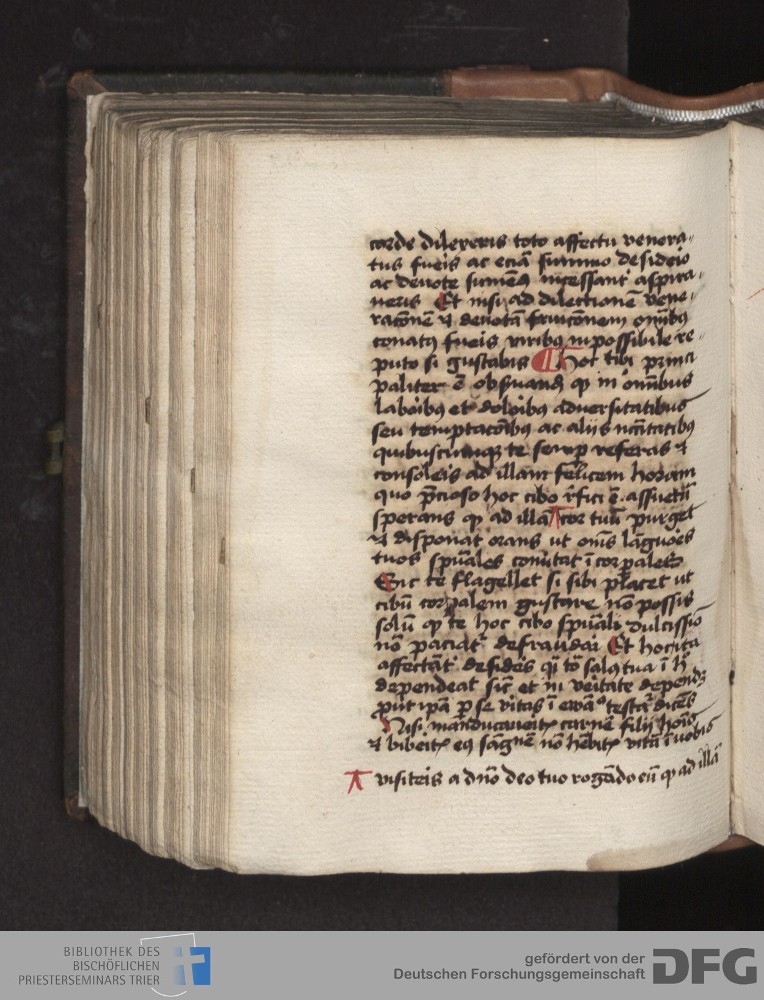 corde dilexeris toto affectu venera-
tus fueis ac eciā summo desideio
ac deuote sumēs incessant aspira-
ueris Et nisi ad dilectionē vene-
racōnē et deuotā fruicōnem omibus
conatus fueis viribus inpossibile re-
puto si gustabis ¶ Hoc tibi princi
paliter ē obseruand qp in omibus
laboibus et doloibus aduersitatibus
seu temptacōibus ac aliis
quibuscumque te semp referas et
consoleis ad illam felicem horam
quo preioso hoc cibo refici ē assuetū
sperans qp ad illā cor tuū purget
et disponat orans ut omēs lāguoes
tuos spūales cōmutat ī corpales
Sic te flagellet si sibi placet ut
cibū corpalem gustare nō possis
solū qp te hoc cibo spūali dulcissīo
nō paciat defraudai Et hoc ita
affectāt desides qi tō salus tua ī h
dependeat sic et in veitate depend
put ipā p se vitas ī ewāo testat dicēs
Nisi manducaueitis carnē filij hoīs
et bibeitis eius sāgnē nō hēbitis vitā ī uobis
visiteis a dno deo tuo rogādo eū qp ad illā
BIBLIOTHEK DES
BISCHÖFLICHEN
PRIESTERSEMINARS TRIER
gefördert von der
Deutschen Forschungsgemeinschaft
DFG